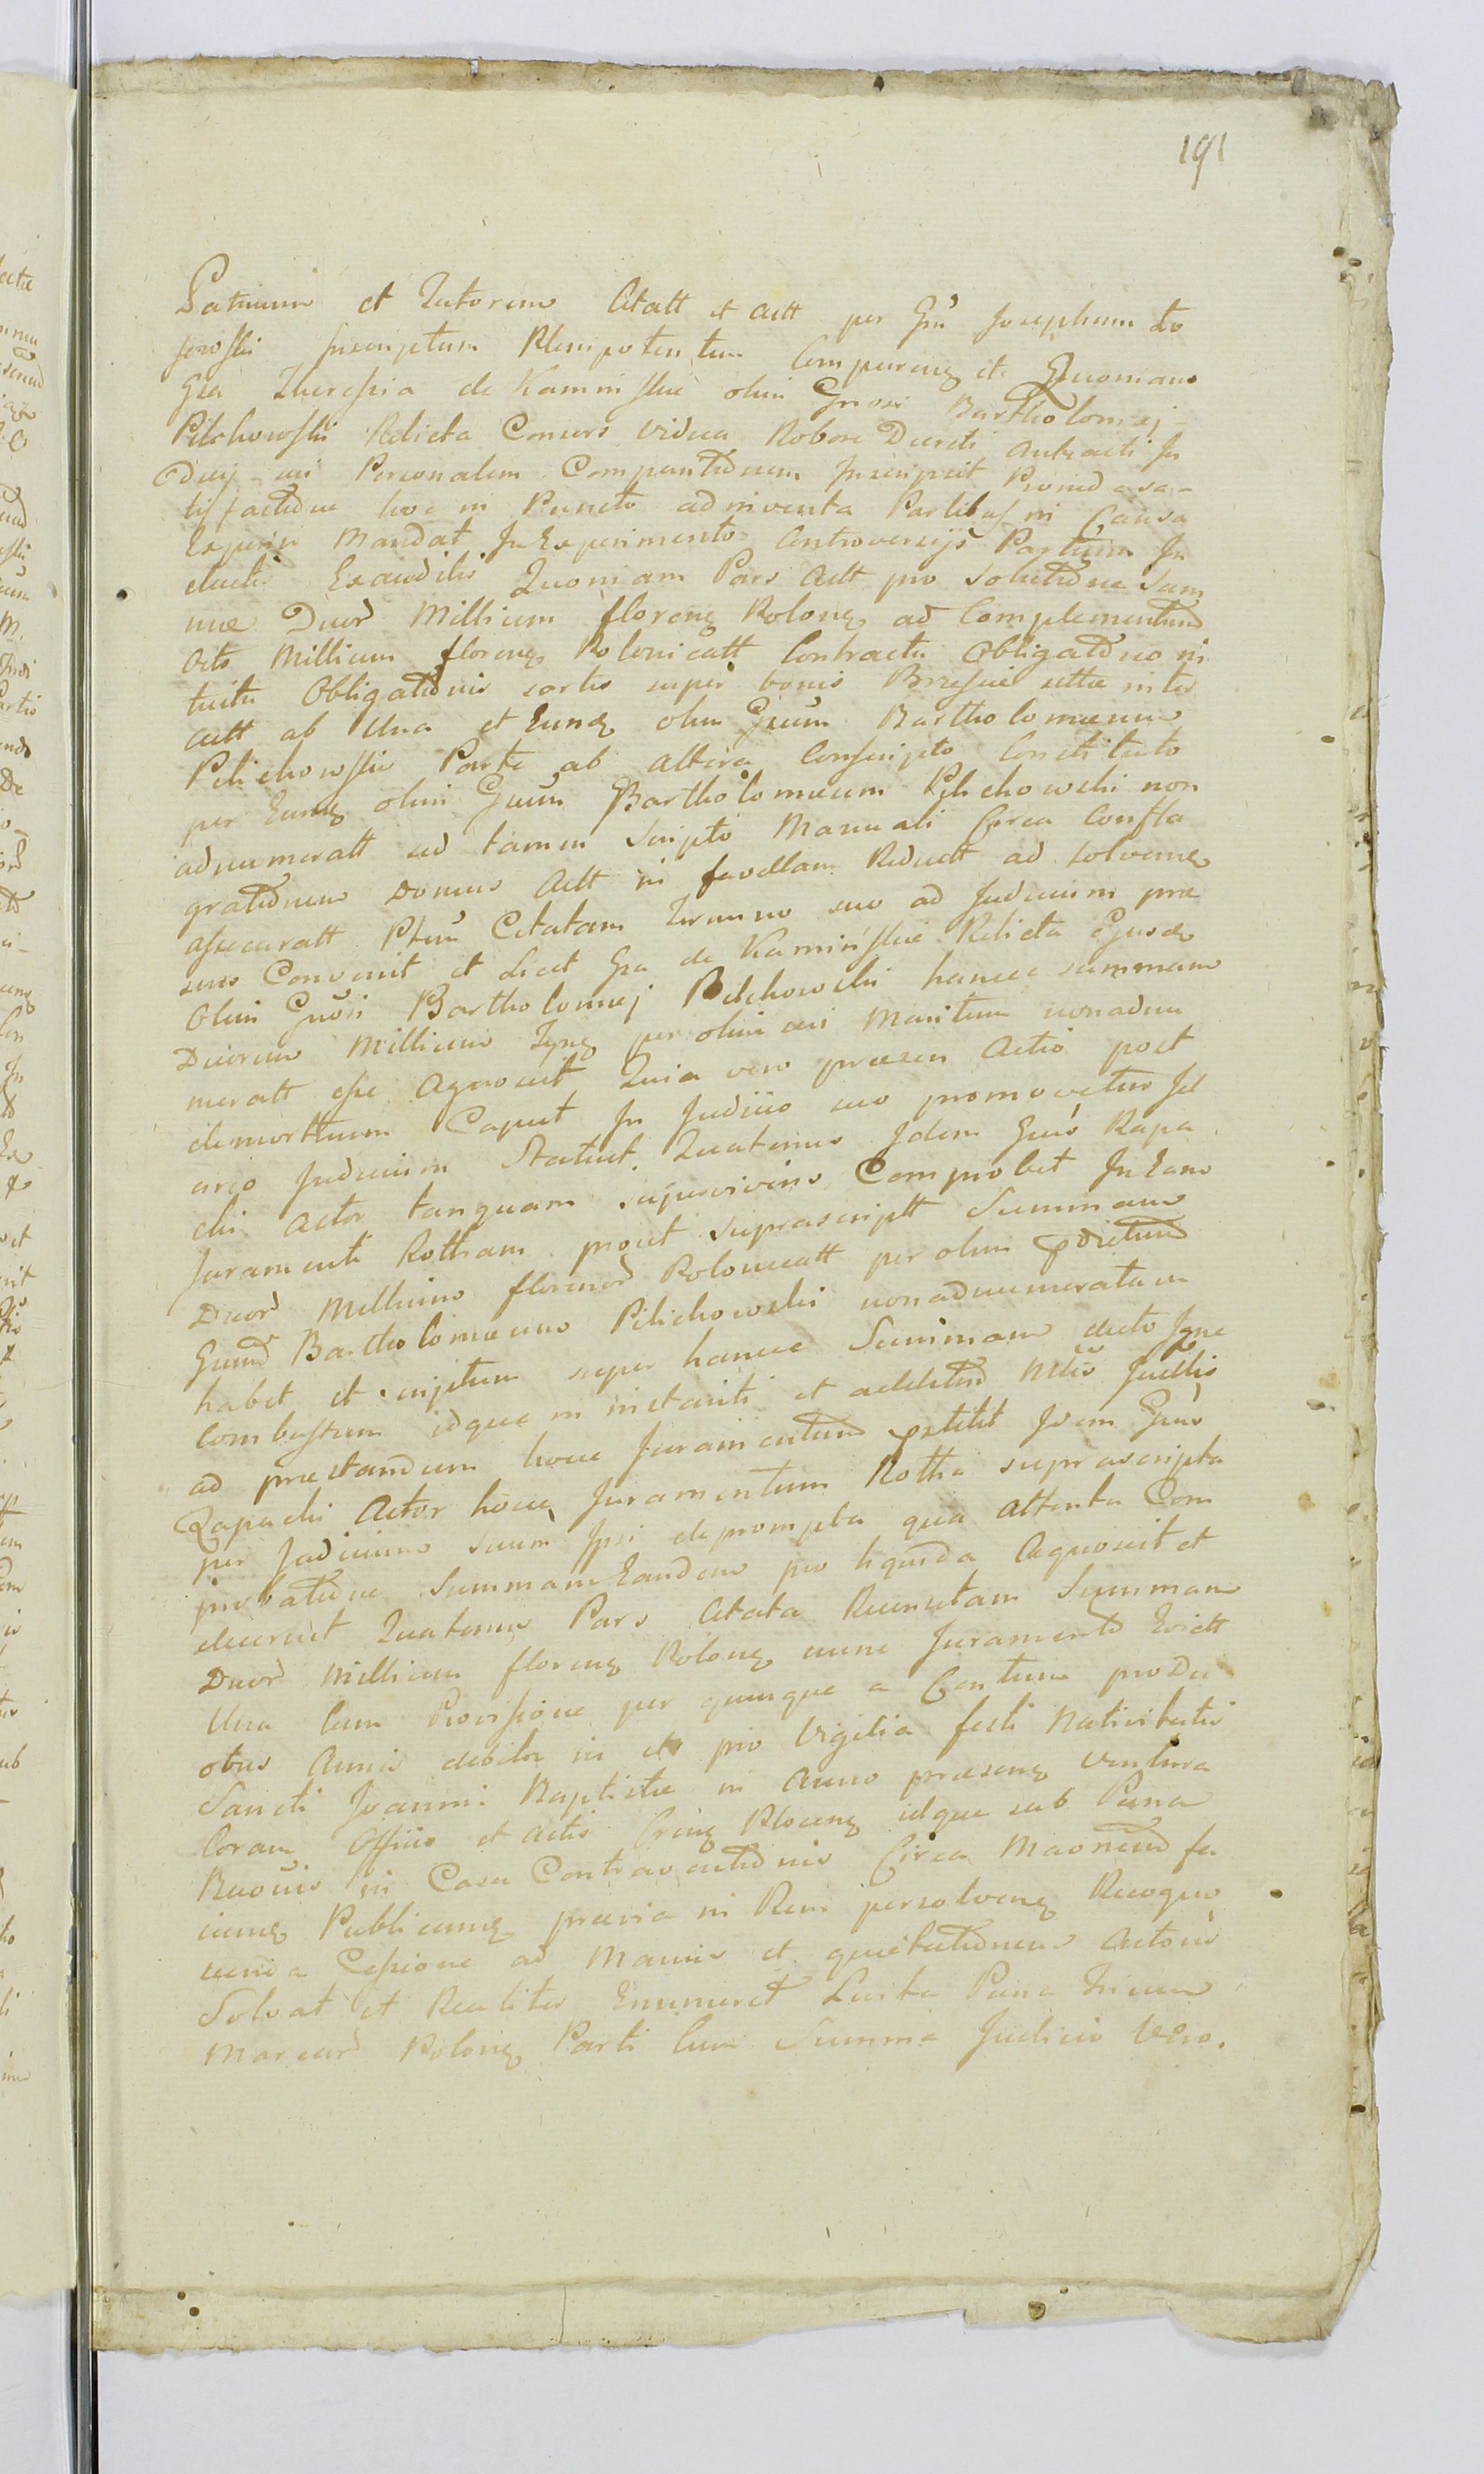 191
Patruum et Tutorem Citatt et Actt per Gnū Josephum Lo
sowski Inscriptum Plenipotentem Comparenq etc Quoniam
Gsa Theressia de Kaminskie olim Gnosi Bartholomej
Pilchowski Relicta Consors vidua Robore Decreti Antiacti Ju
Dicij sui Personalem Comparitionem Inscripsit Proinde sa-
tisfactione hoc in Puncto adinventa Partibus in Causa
Experiri Mandat In Experimento Controversijs Partium In
ductis Exauditis Quoniam Pars Actt pro Solutione Sum
mae Duor Millium florenq Polonq ad Complementum
Octo Millium florenq Polonicatt Contractu Obligatorio in
tuitu Obligationis sortis super bonis Brzeskie uttae inter
Actt ab Una et Eunq olim Gnum Bartholomaeum
Pilichowskie Parte ab altera Conscripto Constituto
per Eunq olim Gnum Bartholomaeum Pilichowski non
adnumeratt sed tamen Scripto Manuali Circa Confla
grationem Domus Actt in favellam Reductt ad solvenq
assecuratt Ptum Citatam Termino suo ad Judicium prae
sens Convenit et Licet Gsa de Kamińskie Relicta Ejusdem
Olim Gnosi Bartholomej Pilchowski hancce summam
Duorum Millium Tynq per olim sui Maritum nonadnu
meratt esse Agnoscit Quia vero praesen Actio post
demorttuum Caput In Judicio suo promovetur Id
circo Judicium Statuit Quatenus Idem Gnus Rapa
cki Actor tanquam supervivins Comprobet In Eam
Juramenti Rotham prout suprascriptt Summam
Duor Millium florenor Polonicatt per olim pdictum
Gnum Bartholomaeum Pilichowski nonadnumeratam
habet et scriptum super hancce Summam dicto Igne
Combustum idque in instanti et addettum
ad praestandum hocce Juramentum extitit Idem Gnus
Rapacki Actor hocce Juramentum Rotha suprascripta
per Judicium Suum Ipsi deprompta qua attenta Com
probatione Summam Eandem pro liquida Agnoscit et
decernit Quatenus Pars Citata Recensitam Summam
Duor Millium florenq Polonq nunc Juramento Evictt
Una Cum Provisione per quinque a Centum pro Du
obus Annis debita in et pro Vigilia festi Nativitatis
Sancti Joannis Baptistae in Anno praesenq ventura
Coram Officio et Actis Crinq Plocenq idque sub Paena
in Casu Contraventionis Circa fa
cienq Publicanq praevia in Rem persolvenq Recogno
scenda Cessione ad Manus et quietationem Actoris
Solvat et Realiter Enumeret Luita Paena Trium
Marcar Polonq Parti Cum Summa Judicio Vero.